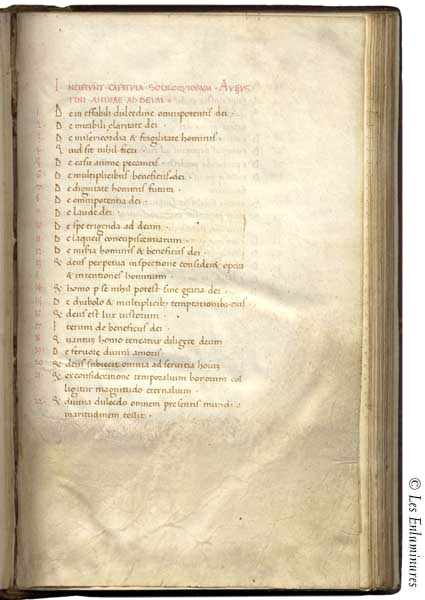 INCIPIUNT CAPITULA SOLILOQUIORUM · AUGUS
TINI ANIMAE AD DEUM ·
De ineffabili dulcedine omnipotentis dei ·
De mirabili claritate dei ·
De misericordia & fragilitate hominis ·
Quid sit nihil fieri
De casu anime peccantis ·
De multiplicibus beneficiis dei ·
De dignitate hominis futura ·
De omnipotentia dei ·
De laude dei ·
De spe erigenda ad deum ·
De laqueis concupiscentiarum ·
De miseria hominis & beneficiis dei ·
Q deus perpetua inspectione considerat opera
& intentiones hominum ·
Q homo p se nihil potest sine gratia dei ·
De dyabolo & multiplicib; temptationib; eius
Q deus est lux iustorum ·
Iterum de beneficiis dei ·
Quantum homo teneatur diligere deum
De fervore divini amoris
Q deus subiecit omnia ad servitia hominis
Q ex consideratione temporalium bonorum col
ligitur magnitudo eternalium ·
Q divina dulcedo omnem presentis mundi a
maritudinem tollit ·
© Les Enluminures